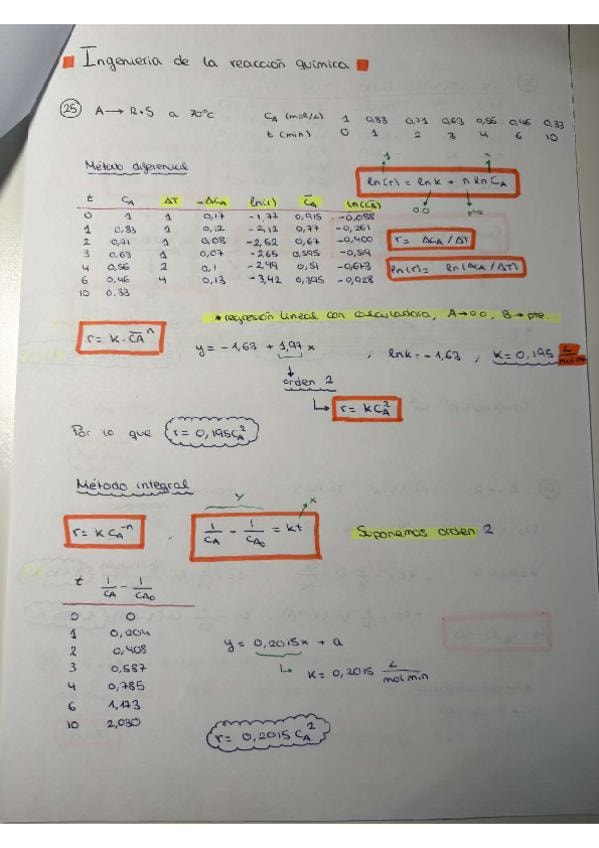 Ingenieria de la reacción química
25 A → R+S a 70°C CA (mol/L) 1 0,83 0,71 0,63 0,56 0,46 0,33
t (min) 0 1 2 3 4 6 10
Método diferencial
ln(r) = lnk + n ln CA
o.o pte
t CA ΔT -ΔCA ln(r) C̄A ln(C̄A)
0 1 1 0,17 -1,77 0,915 -0,088
1 0,83 1 0,12 -2,12 0,77 -0,261
2 0,71 1 0,08 -2,52 0,67 -0,400
3 0,63 1 0,07 -2,65 0,595 -0,519
4 0,56 2 0,1 -2,99 0,51 -0,673
6 0,46 4 0,13 -3,42 0,395 -0,928
10 0,33
r = ΔCA / ΔT
ln(r) = ln(ΔCA / ΔT)
* regresión lineal con calculadora, A→o.o, B→pte.
r = k · C̄A^n
y = -1,63 + 1,97 x , lnk = -1,63 , K = 0,195 L/mol·min
orden 2
r = kCA^2
Por lo que r = 0,195CA^2
Método integral
y x
r = k CA^-n , 1/CA - 1/CA0 = kt Suponemos orden 2
t 1/CA - 1/CA0
0 0
1 0,204
2 0,408
3 0,587
4 0,785
6 1,173
10 2,030
y = 0,2015x + a
K = 0,2015 L/mol min
r = 0,2015 CA^2